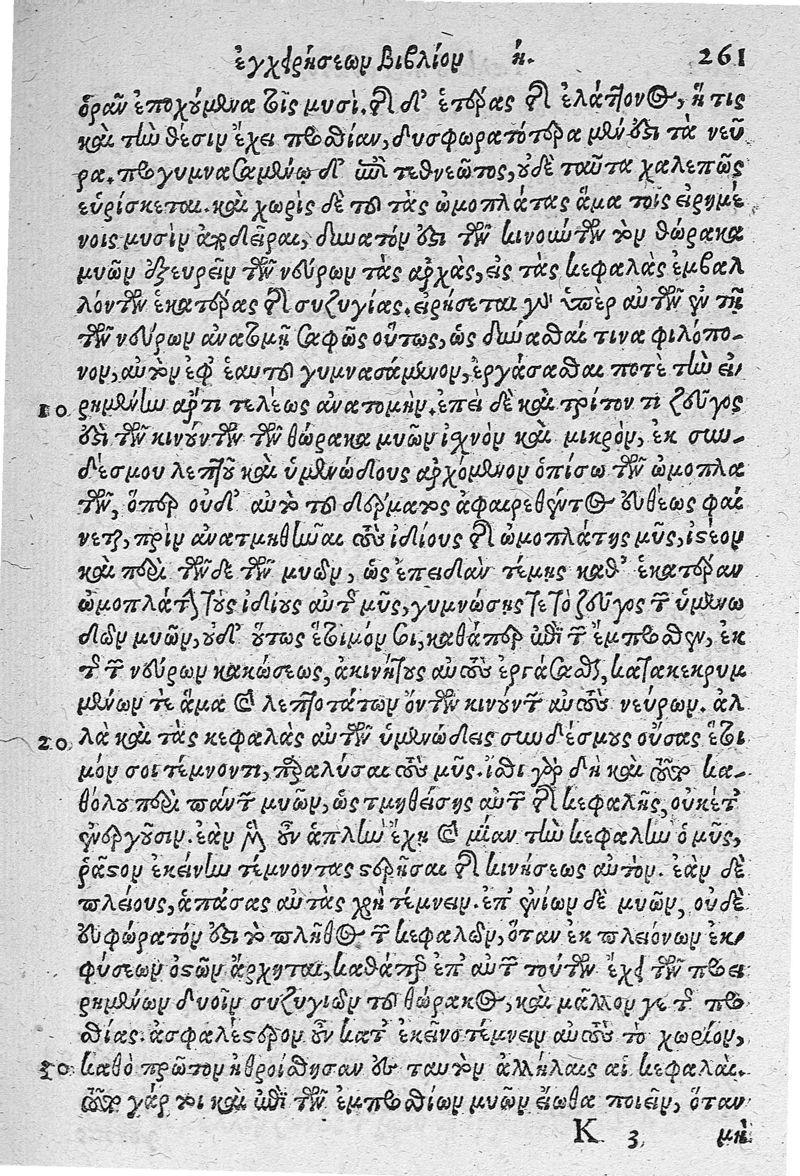 ἐγχειρήσεων βιβλίον η. 261
ὁρᾶν ἐποχούμενα τοῖς μυσὶ. τῆς δ' ἑτέρας τῆς ἐλάττονος, ἥ τις
καὶ τὴν θέσιν ἔχει προσθίαν, δυσφωρατότερα μέν ἐστι τὰ νεῦ
ρα. προγυμνασαμένῳ δ' ἐπὶ τεθνεῶτος, οὐδὲ ταῦτα χαλεπῶς
εὑρίσκεται. καὶ χωρὶς δὲ τοῦ τὰς ὠμοπλάτας ἅμα τοῖς εἰρημέ
νοις μυσὶν ἀποδεῖραι, δυνατόν ἐστι τῶν κινούντων τὸν θώρακα
μυῶν ἐξευρεῖν τῶν νεύρων τὰς ἀρχὰς, εἰς τὰς κεφαλὰς ἐμβαλ
λόντων ἑκατέρας τῆς συζυγίας. εἰρήσεται γὰρ ὑπὲρ αὐτῶν ἐν τῇ
τῶν νεύρων ἀνατομῇ σαφῶς οὕτως, ὡς δύνασθαί τινα φιλόπο-
νον, αὐτὸν ἐφ' ἑαυτοῦ γυμνασάμενον, ἐργάσασθαι ποτὲ τὴν εἰ-
10 ρημένην ἄρτι τελέως ἀνατομήν. ἐπεὶ δὲ καὶ τρίτον τι ζεῦγος
ἐστὶ τῶν κινούντων τῶν θώρακα μυῶν ἰσχνὸν καὶ μικρόν, ἐκ συν-
δέσμου λεπτοῦ καὶ ὑμενώδους ἀρχόμενον ὀπίσω τῶν ὠμοπλα
τῶν, ὅπερ οὐδ' αὐτὸ τοῦ δέρματος ἀφαιρεθέντος εὐθέως φαί
νεται, πρὶν ἀνατμηθῆναι τοὺς ἰδίους τῆς ὠμοπλάτης μῦς, ἰστέον
καὶ περὶ τῶνδε τῶν μυῶν, ὡς ἐπειδὰν τέμῃς καθ' ἑκατέραν
ὠμοπλάτην τοὺς ἰδίους αὐτῆς μῦς, γυμνώσῃς τε τὸ ζεῦγος τῶν ὑμενω
δῶν μυῶν, οὐδ' οὕτως ἕτοιμόν σοι, καθάπερ ἐπὶ τῶν ἔμπροσθεν, ἐκ
τῆς τῶν νεύρων κακώσεως, ἀκινήτους αὐτοὺς ἐργάσασθαι, κατακεκρυμ
μένων τε ἅμα καὶ λεπτοτάτων ὄντων τῶν κινούντων αὐτοὺς νεύρων. ἀλ
20 λὰ καὶ τὰς κεφαλὰς αὐτῶν ὑμενώδεις συνδέσμους οὔσας ἕτοι
μόν σοι τέμνοντι, παραλύσαι τοὺς μῦς. ἴσθι γὰρ δὴ καὶ τοῦτο κα-
θόλου περὶ πάντων μυῶν, ὡς τμηθείσης αὐτῶν τῆς κεφαλῆς, οὐκέτ'
ἐνεργοῦσιν. ἐὰν μὲν οὖν ἁπλῆν ἔχῃ καὶ μίαν τὴν κεφαλὴν ὁ μῦς,
ῥᾷστον ἐκείνην τέμνοντας στερῆσαι τῆς κινήσεως αὐτόν. ἐὰν δὲ
πλείους, ἁπάσας αὐτὰς χρὴ τέμνειν. ἐπ' ἐνίων δὲ μυῶν, οὐδὲ
εὐφώρατόν ἐστι τὸ πλῆθος τῶν κεφαλῶν, ὅταν ἐκ πλειόνων ἐκ-
φύσεων ὀστῶν ἄρχηται, καθάπερ ἐπ' αὐτῶν τούτων ἔχει τῶν προει
ρημένων δυοῖν συζυγιῶν τοῦ θώρακος, καὶ μᾶλλόν γε τῆς προ
σθίας. ἀσφαλέστερον οὖν κατ' ἐκεῖνο τέμνειν αὐτοὺς τὸ χωρίον,
30 καθὸ πρῶτον ἠθροίσθησαν εἰς ταυτὸν ἀλλήλαις αἱ κεφαλαί.
τοῦτο γάρ τοι καὶ ἐπὶ τῶν ἐμπροσθίων μυῶν εἴωθα ποιεῖν, ὅταν
K 3 μὴ